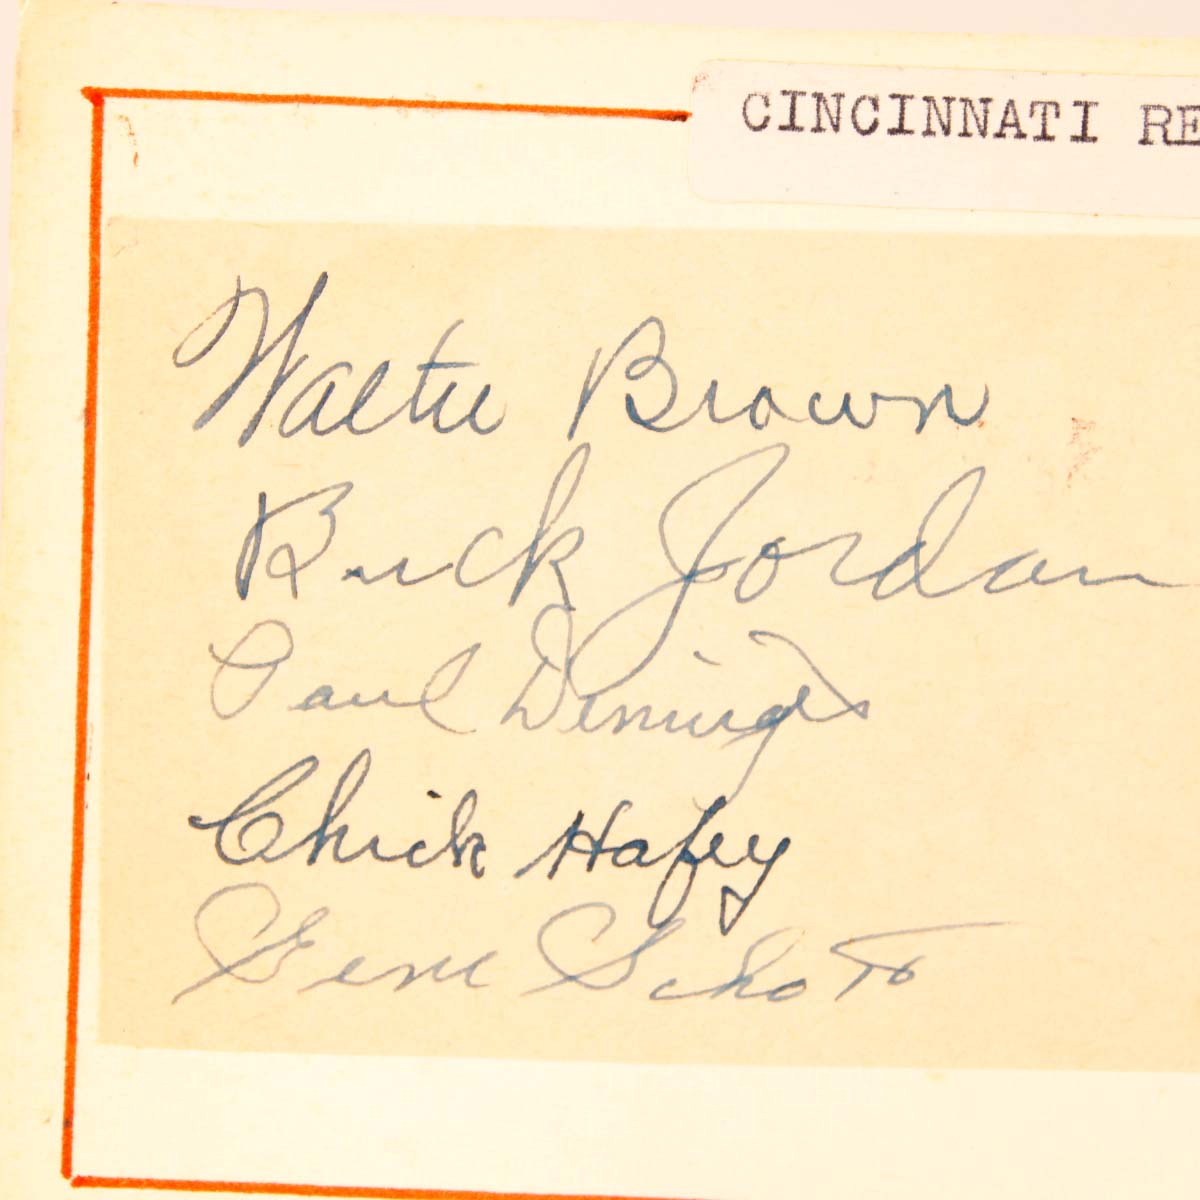 CINCINNATI RE
Walter Brown
Buck Jordan
Paul Derringer
Chick Hafey
Gene Schott